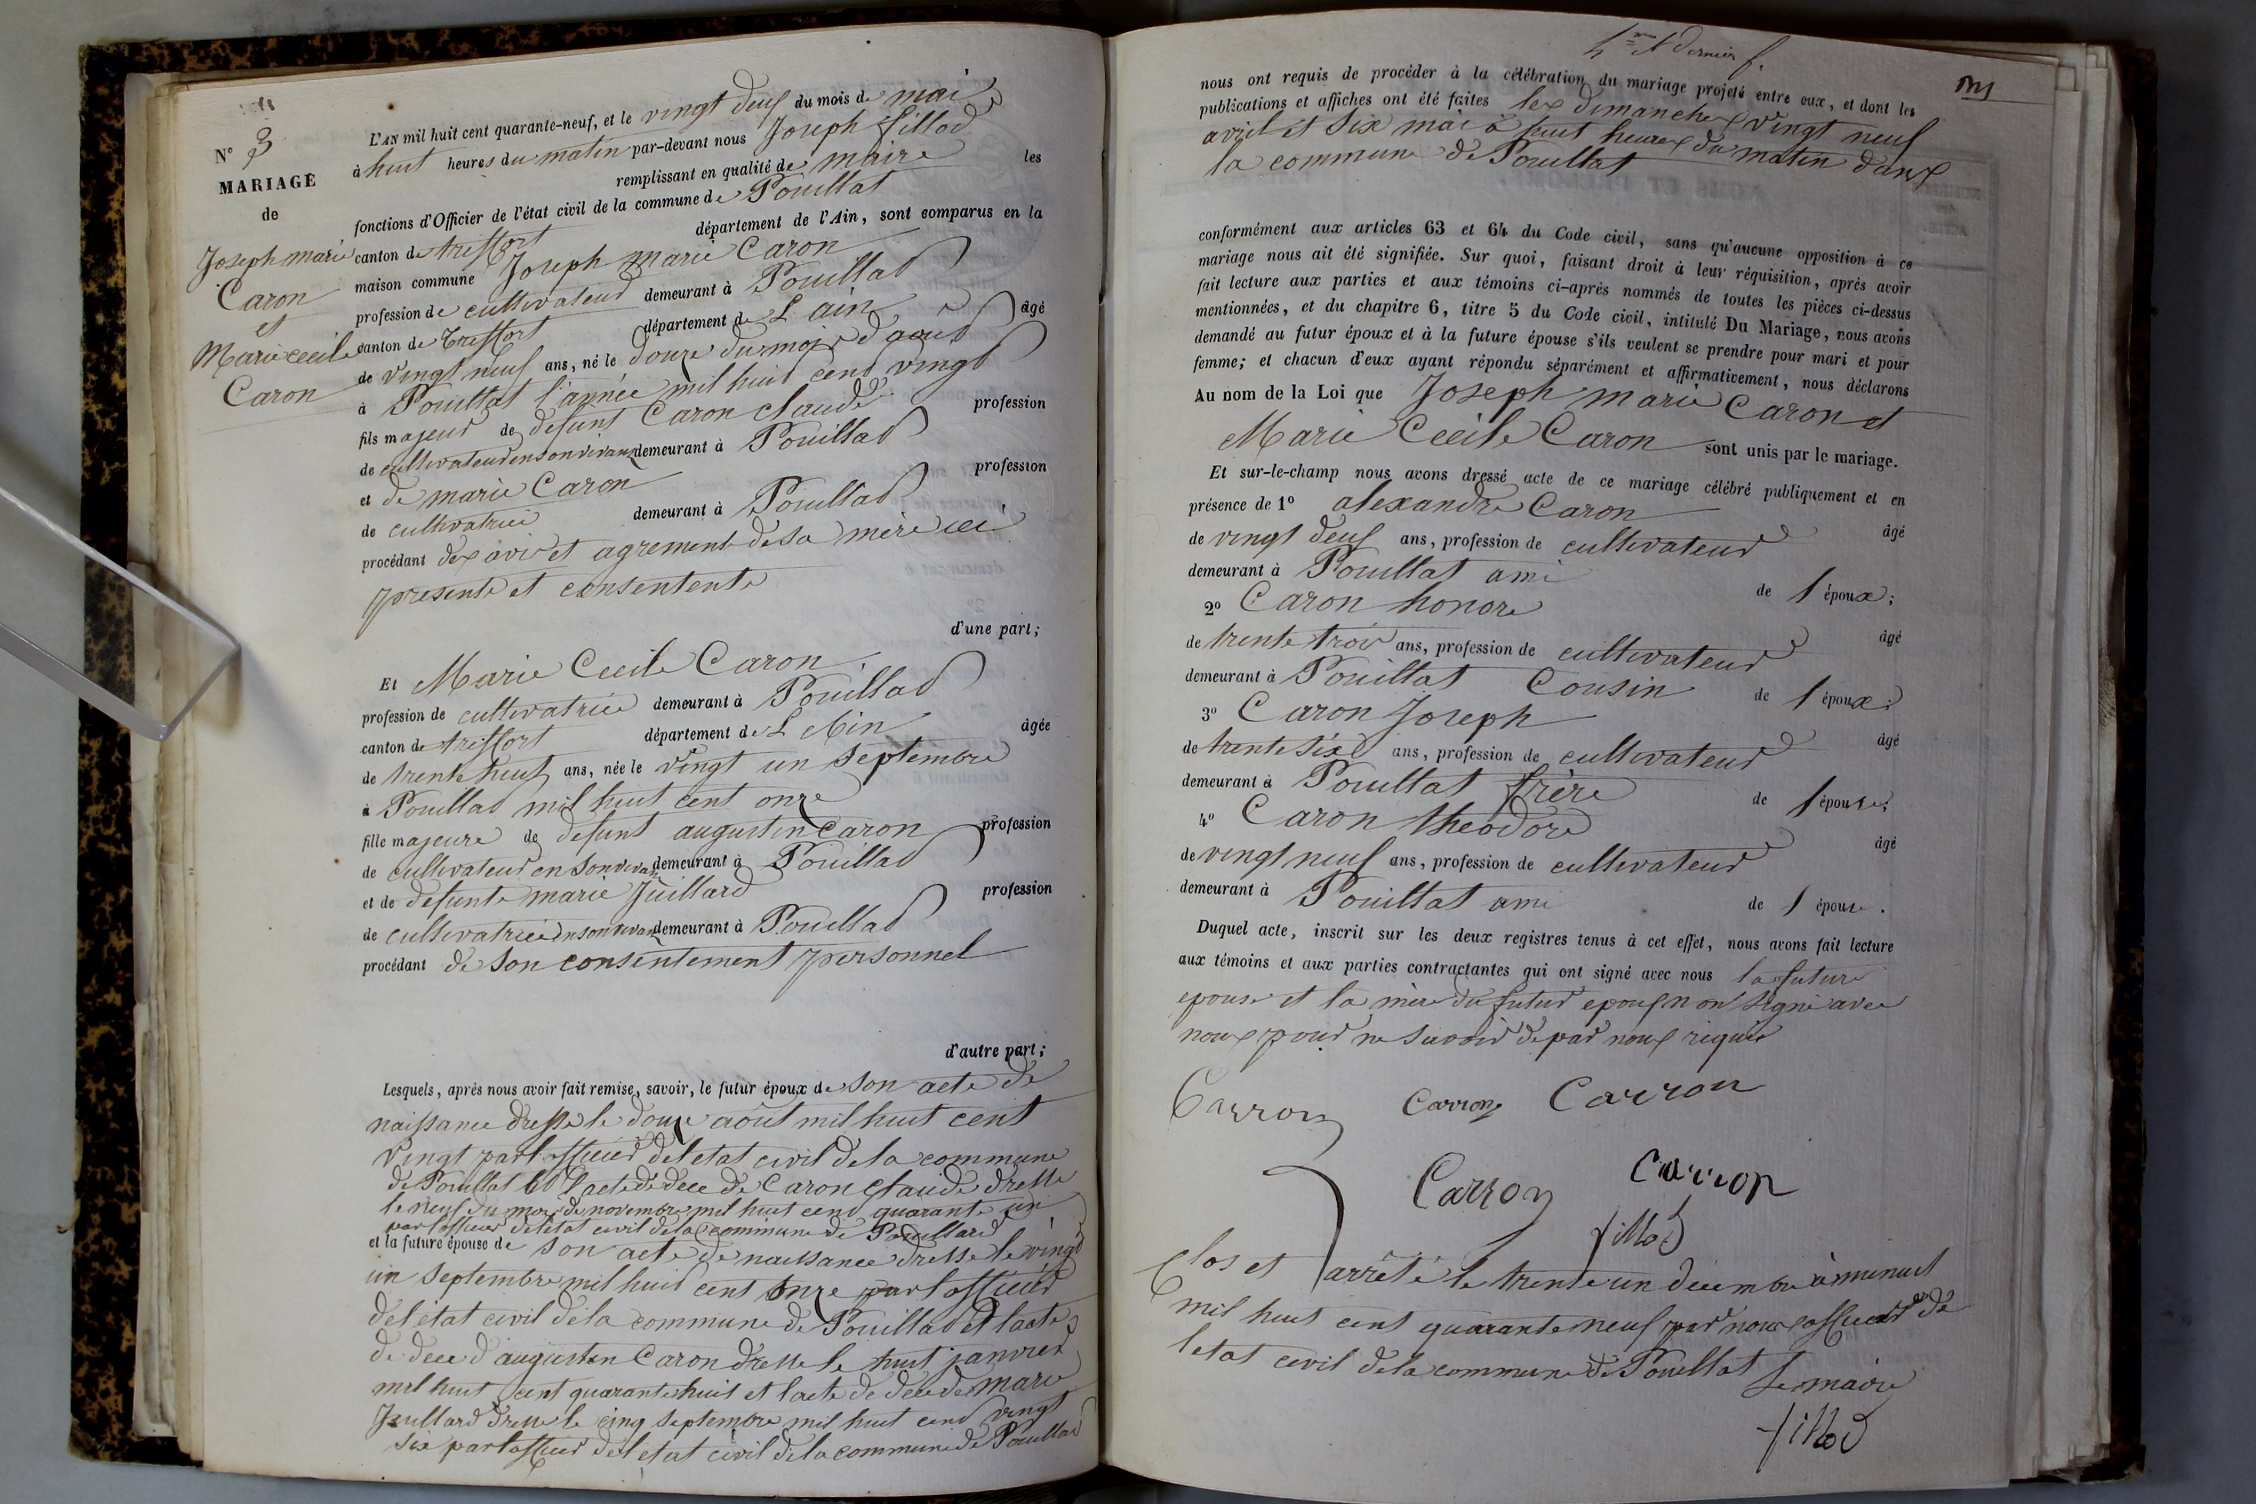 N° 3
MARIAGE
de
Joseph marie
Caron
et
Marie cecile
Caron
L'AN mil huit cent quarante-neuf, et le vingt deux du mois de mai
à huit heures du matin par-devant nous Joseph fillod
remplissant en qualité de maire les
fonctions d'Officier de l'état civil de la commune de Pouillat
canton de treffort département de l'Ain, sont comparus en la
maison commune Joseph marie Caron
profession de cultivateur demeurant à Pouillat
canton de treffort département de L ain âgé
de vingt neuf ans, né le douze du mois d'aout
à Pouillat l'année mil huit cent vingt
fils majeur de defunt Caron claude profession
de cultivateur en son vivant demeurant à Pouillat
et de marie Caron profession
de cultivatrice demeurant à Pouillat
procédant de avis et agrement de sa mère ici
presente et consentente
d'une part;
Et Marie Cecile Caron
profession de cultivatrice demeurant à Pouillat
canton de treffort département de L Ain âgée
de trente huit ans, née le vingt un septembre
à Pouillat mil huit cent onze
fille majeure de defunt augustin Caron profession
de cultivateur en son vivant demeurant à Pouillat
et de defunte marie Juillard profession
de cultivatrice en son vivant demeurant à Pouillat
procédant de son consentement personnel
d'autre part;
Lesquels, après nous avoir fait remise, savoir, le futur époux de son acte de
naissance dresse le douze août mil huit cent
vingt par l officier del etat civil de la commune
de Pouillat et l acte de dece de Caron claude dresse
le neuf du mois de novembre mil huit cent quarante un
par l officier del etat civil de la commune de Pouillat
et la future épouse de son acte de naissance dresse le vingt
un septembre mil huit cent onze par l officier
del état civil de la commune de Pouillat et l acte
de dece d'augustin Caron dresse le huit janvier
mil huit cent quarante huit et l acte de dece de marie
Juillard dresse le cinq septembre mil huit cent vingt
six par l officier del etat civil de la commune de Pouillat
4me & dernier f.
nous ont requis de procéder à la célébration du mariage projeté entre eux, et dont les
publications et affiches ont été faites les dimanches vingt neuf
avril et six mai à huit heures du matin dans
la commune de Pouillat
conformément aux articles 63 et 64 du Code civil, sans qu'aucune opposition à ce
mariage nous ait été signifiée. Sur quoi, faisant droit à leur réquisition, après avoir
fait lecture aux parties et aux témoins ci-après nommés de toutes les pièces ci-dessus
mentionnées, et du chapitre 6, titre 5 du Code civil, intitulé Du Mariage, nous avons
demandé au futur époux et à la future épouse s'ils veulent se prendre pour mari et pour
femme; et chacun d'eux ayant répondu séparément et affirmativement, nous déclarons
Au nom de la Loi que Joseph marie Caron et
Marie Cecile Caron sont unis par le mariage.
Et sur-le-champ nous avons dressé acte de ce mariage célébré publiquement et en
présence de 1° alexandre Caron âgé
de vingt deux ans, profession de cultivateur
demeurant à Pouillat ami de l époux;
2° Caron honore âgé
de trente trois ans, profession de cultivateur
demeurant à Pouillat Cousin de l époux;
3° Caron Joseph âgé
de trente six ans, profession de cultivateur
demeurant à Pouillat frère de l épouse;
4° Caron theodore âgé
de vingt neuf ans, profession de cultivateur
demeurant à Pouillat ami de l épouse.
Duquel acte, inscrit sur les deux registres tenus à cet effet, nous avons fait lecture
aux témoins et aux parties contractantes qui ont signé avec nous la future
epouse et la mère du futur epoux n on signé avec
nous pour ne savoir de par nous requis
Carron Carron Carron
Carron Carron
fillod
Clos et arrêté le trente un décembre à minuit
mil huit cent quarante neuf par nous officier de
letat civil de la commune de Pouillat Le maire
fillod